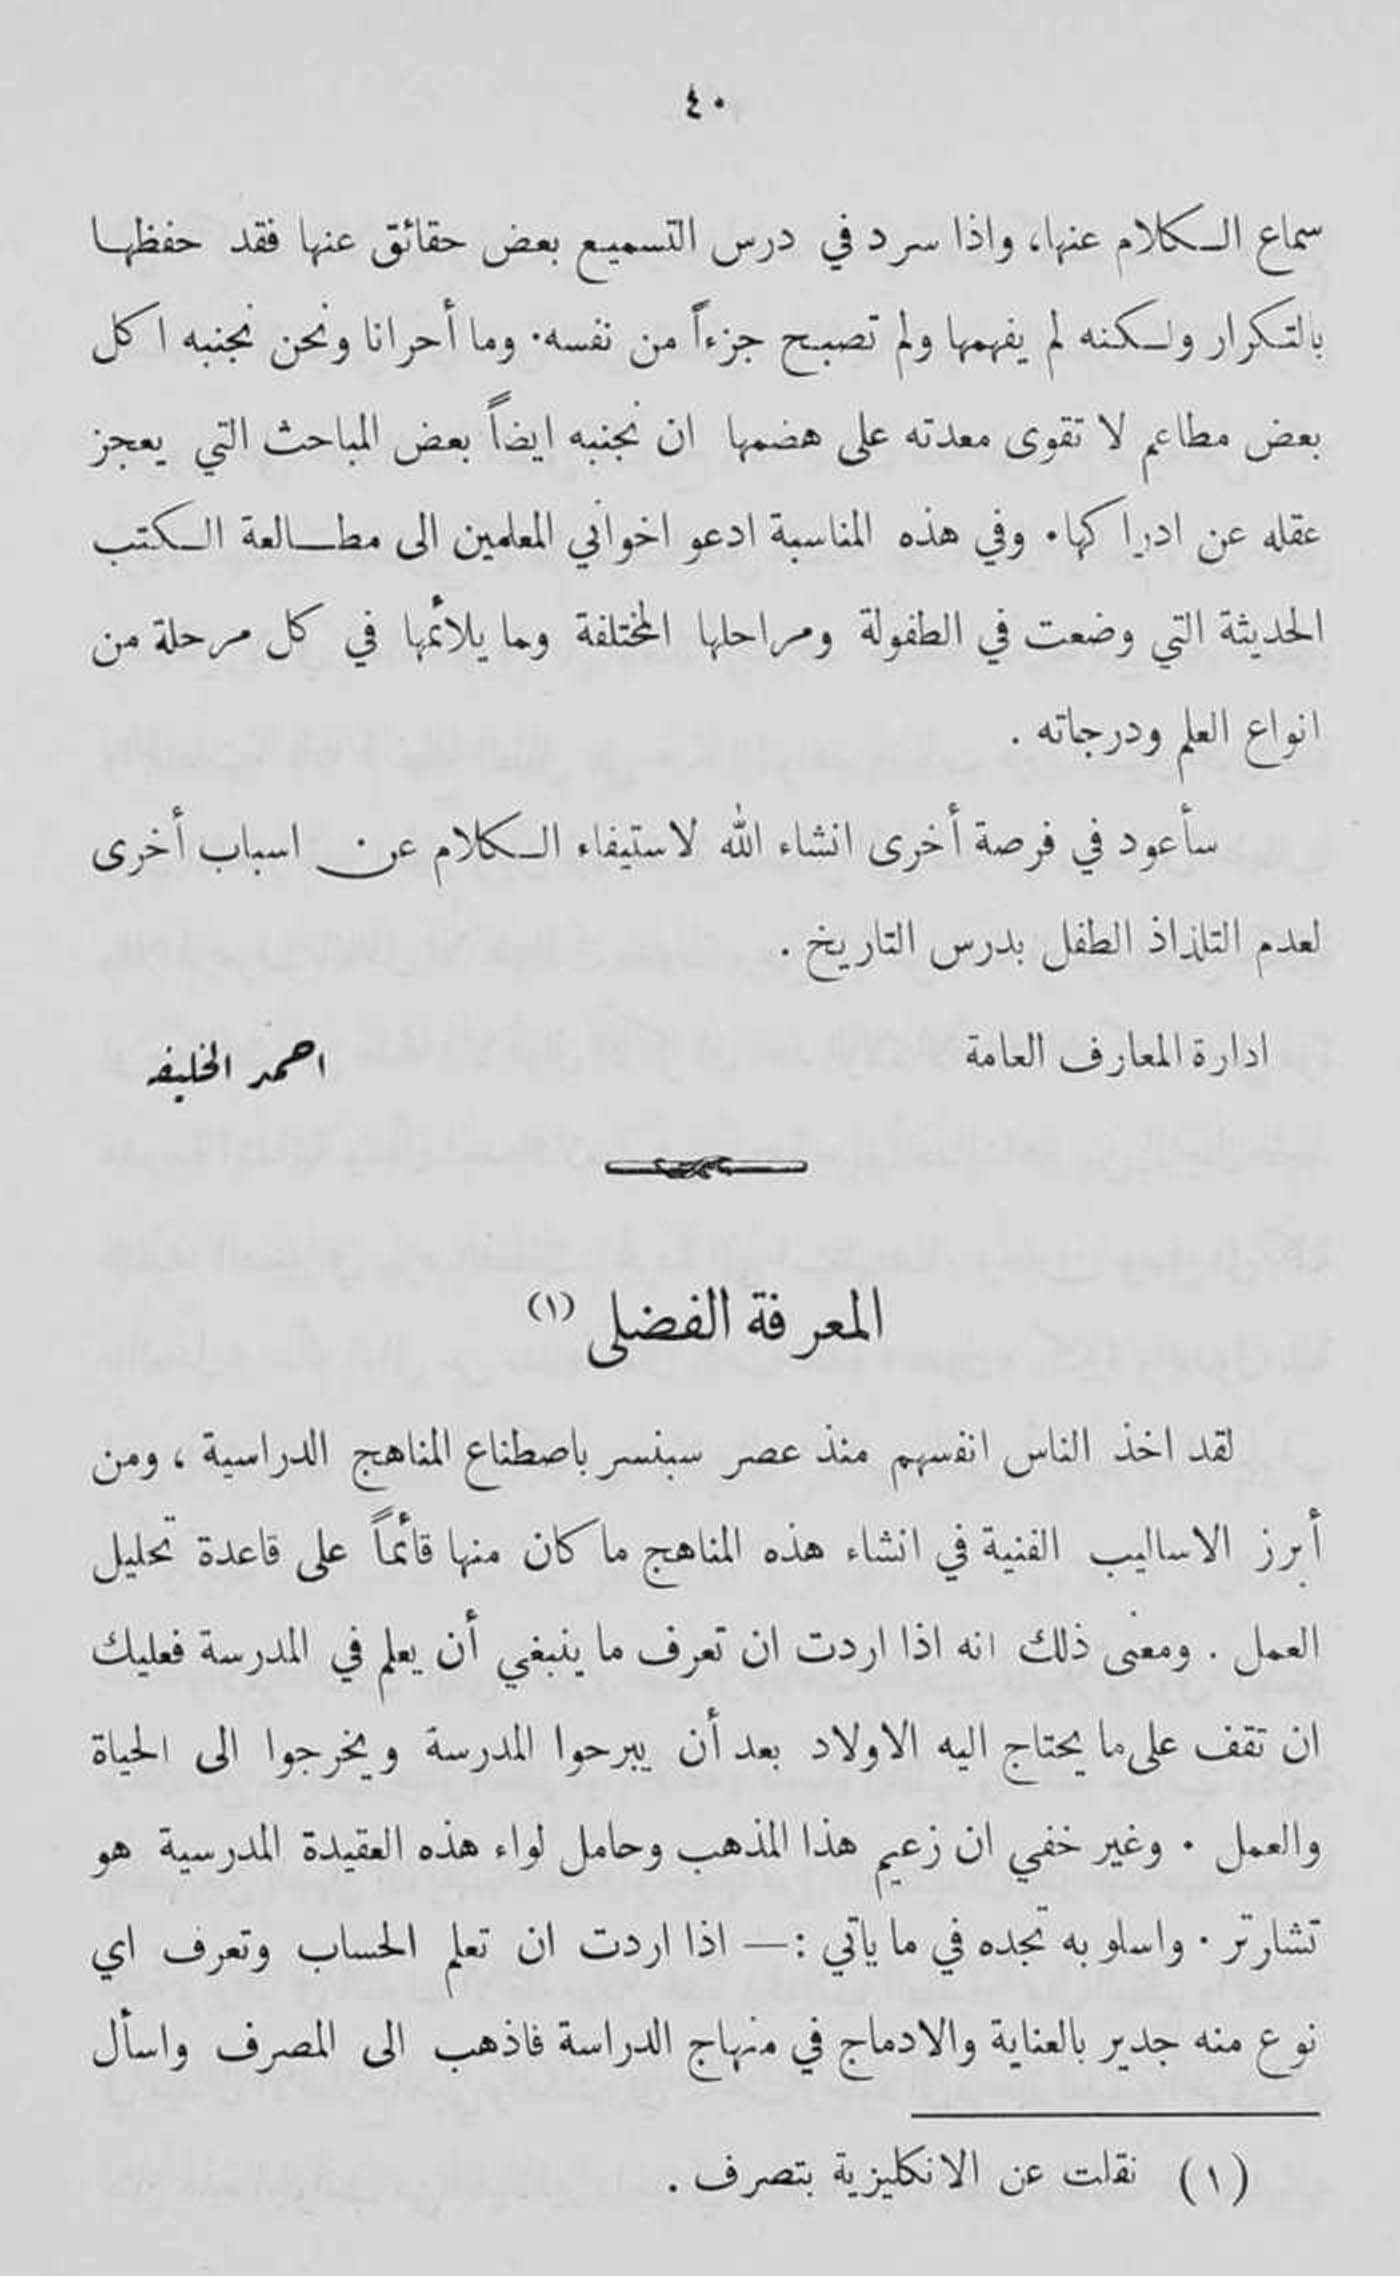 ٤٠
سماع الكلام عنها، واذا سرد في درس التسميع بعض حقائق عنها فقد حفظها
بالتكرار ولكنه لم يفهمها ولم تصبح جزءاً من نفسه. وما أحرانا ونحن نجنبه اكل
بعض مطاعم لا تقوى معدته على هضمها ان نجنبه ايضاً بعض المباحث التي يعجز
عقله عن ادراكها. وفي هذه المناسبة ادعو اخواني المعلمين الى مطالعة الكتب
الحديثة التي وضعت في الطفولة ومراحلها المختلفة وما يلائمها في كل مرحلة من
انواع العلم ودرجاته .
سأعود في فرصة أخرى انشاء الله لاستيفاء الكلام عن اسباب أخرى
لعدم التلذاذ الطفل بدرس التاريخ .
ادارة المعارف العامة احمد الخليفه
المعرفة الفضلى (١)
لقد اخذ الناس انفسهم منذ عصر سبنسر باصطناع المناهج الدراسية ، ومن
أبرز الاساليب الفنية في انشاء هذه المناهج ما كان منها قائماً على قاعدة تحليل
العمل . ومعنى ذلك انه اذا اردت ان تعرف ما ينبغي أن يعلم في المدرسة فعليك
ان تقف على ما يحتاج اليه الاولاد بعد أن يبرحوا المدرسة ويخرجوا الى الحياة
والعمل . وغير خفي ان زعيم هذا المذهب وحامل لواء هذه العقيدة المدرسية هو
تشارتر . واسلوبه تجده في ما ياتي :— اذا اردت ان تعلم الحساب وتعرف اي
نوع منه جدير بالعناية والادماج في منهاج الدراسة فاذهب الى المصرف واسأل
(١) نقلت عن الانكليزية بتصرف .